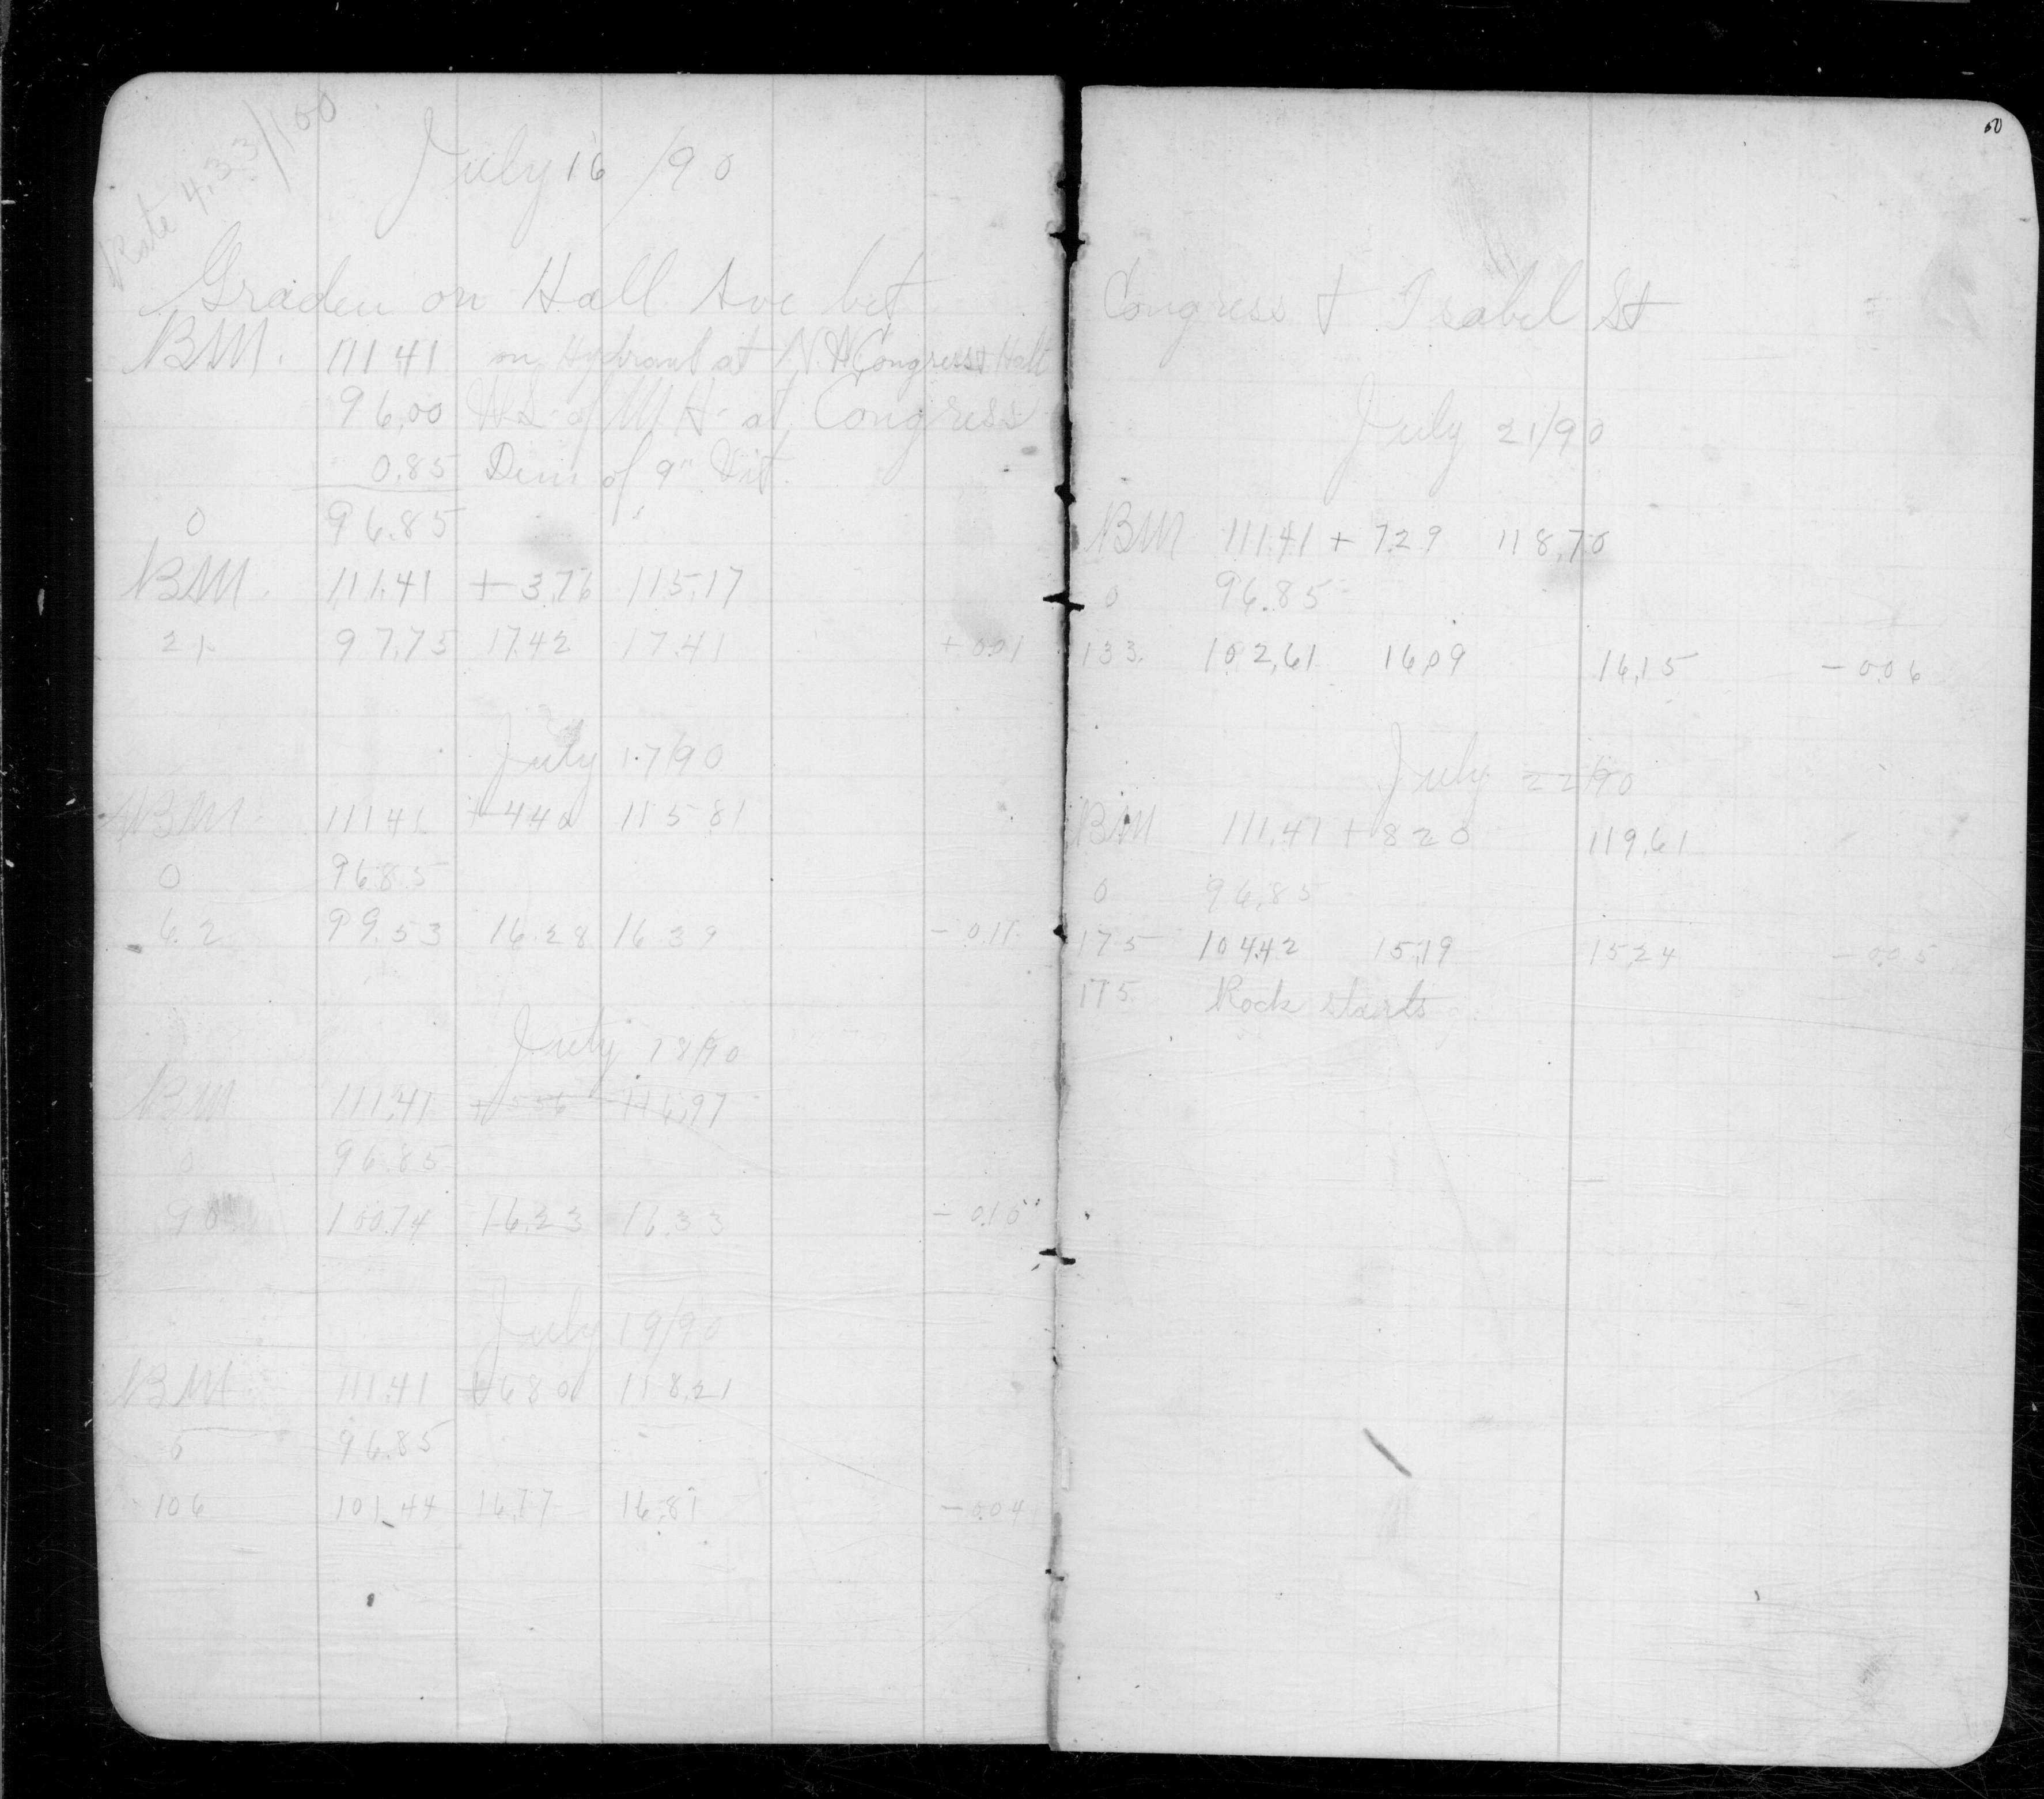 Rate 4.33/100
July 16/90
Graden on Hall Ave bet
BM. 111.41 on Hydrant at N.W. Congress & Hall
96.00 of MH at Congress
0.85 Dim of 9" Vit.
0 96.85
BM. 111.41 + 3.76 115.17
21 97.75 17.42 17.41 + 0.01
July 17/90
BM. 111.41 + 4.40 115.81
0 96.85
62 99.53 16.28 16.39 - 0.11
July 18/90
BM 111.41 + 5.56 116.97
0 96.85
90 100.74 16.23 16.33 - 0.10
July 19/90
BM 111.41 + 6.80 118.21
0 96.85
106 101.44 16.77 16.81 - 0.04
50
Congress & Isabel St
July 21/90
BM 111.41 + 7.29 118.70
0 96.85
133. 102.61 16.09 16.15 - 0.06
July 22/90
BM 111.41 + 8.20 119.61
0 96.85
175 104.42 15.19 15.24 - 0.05
175 Rock starts